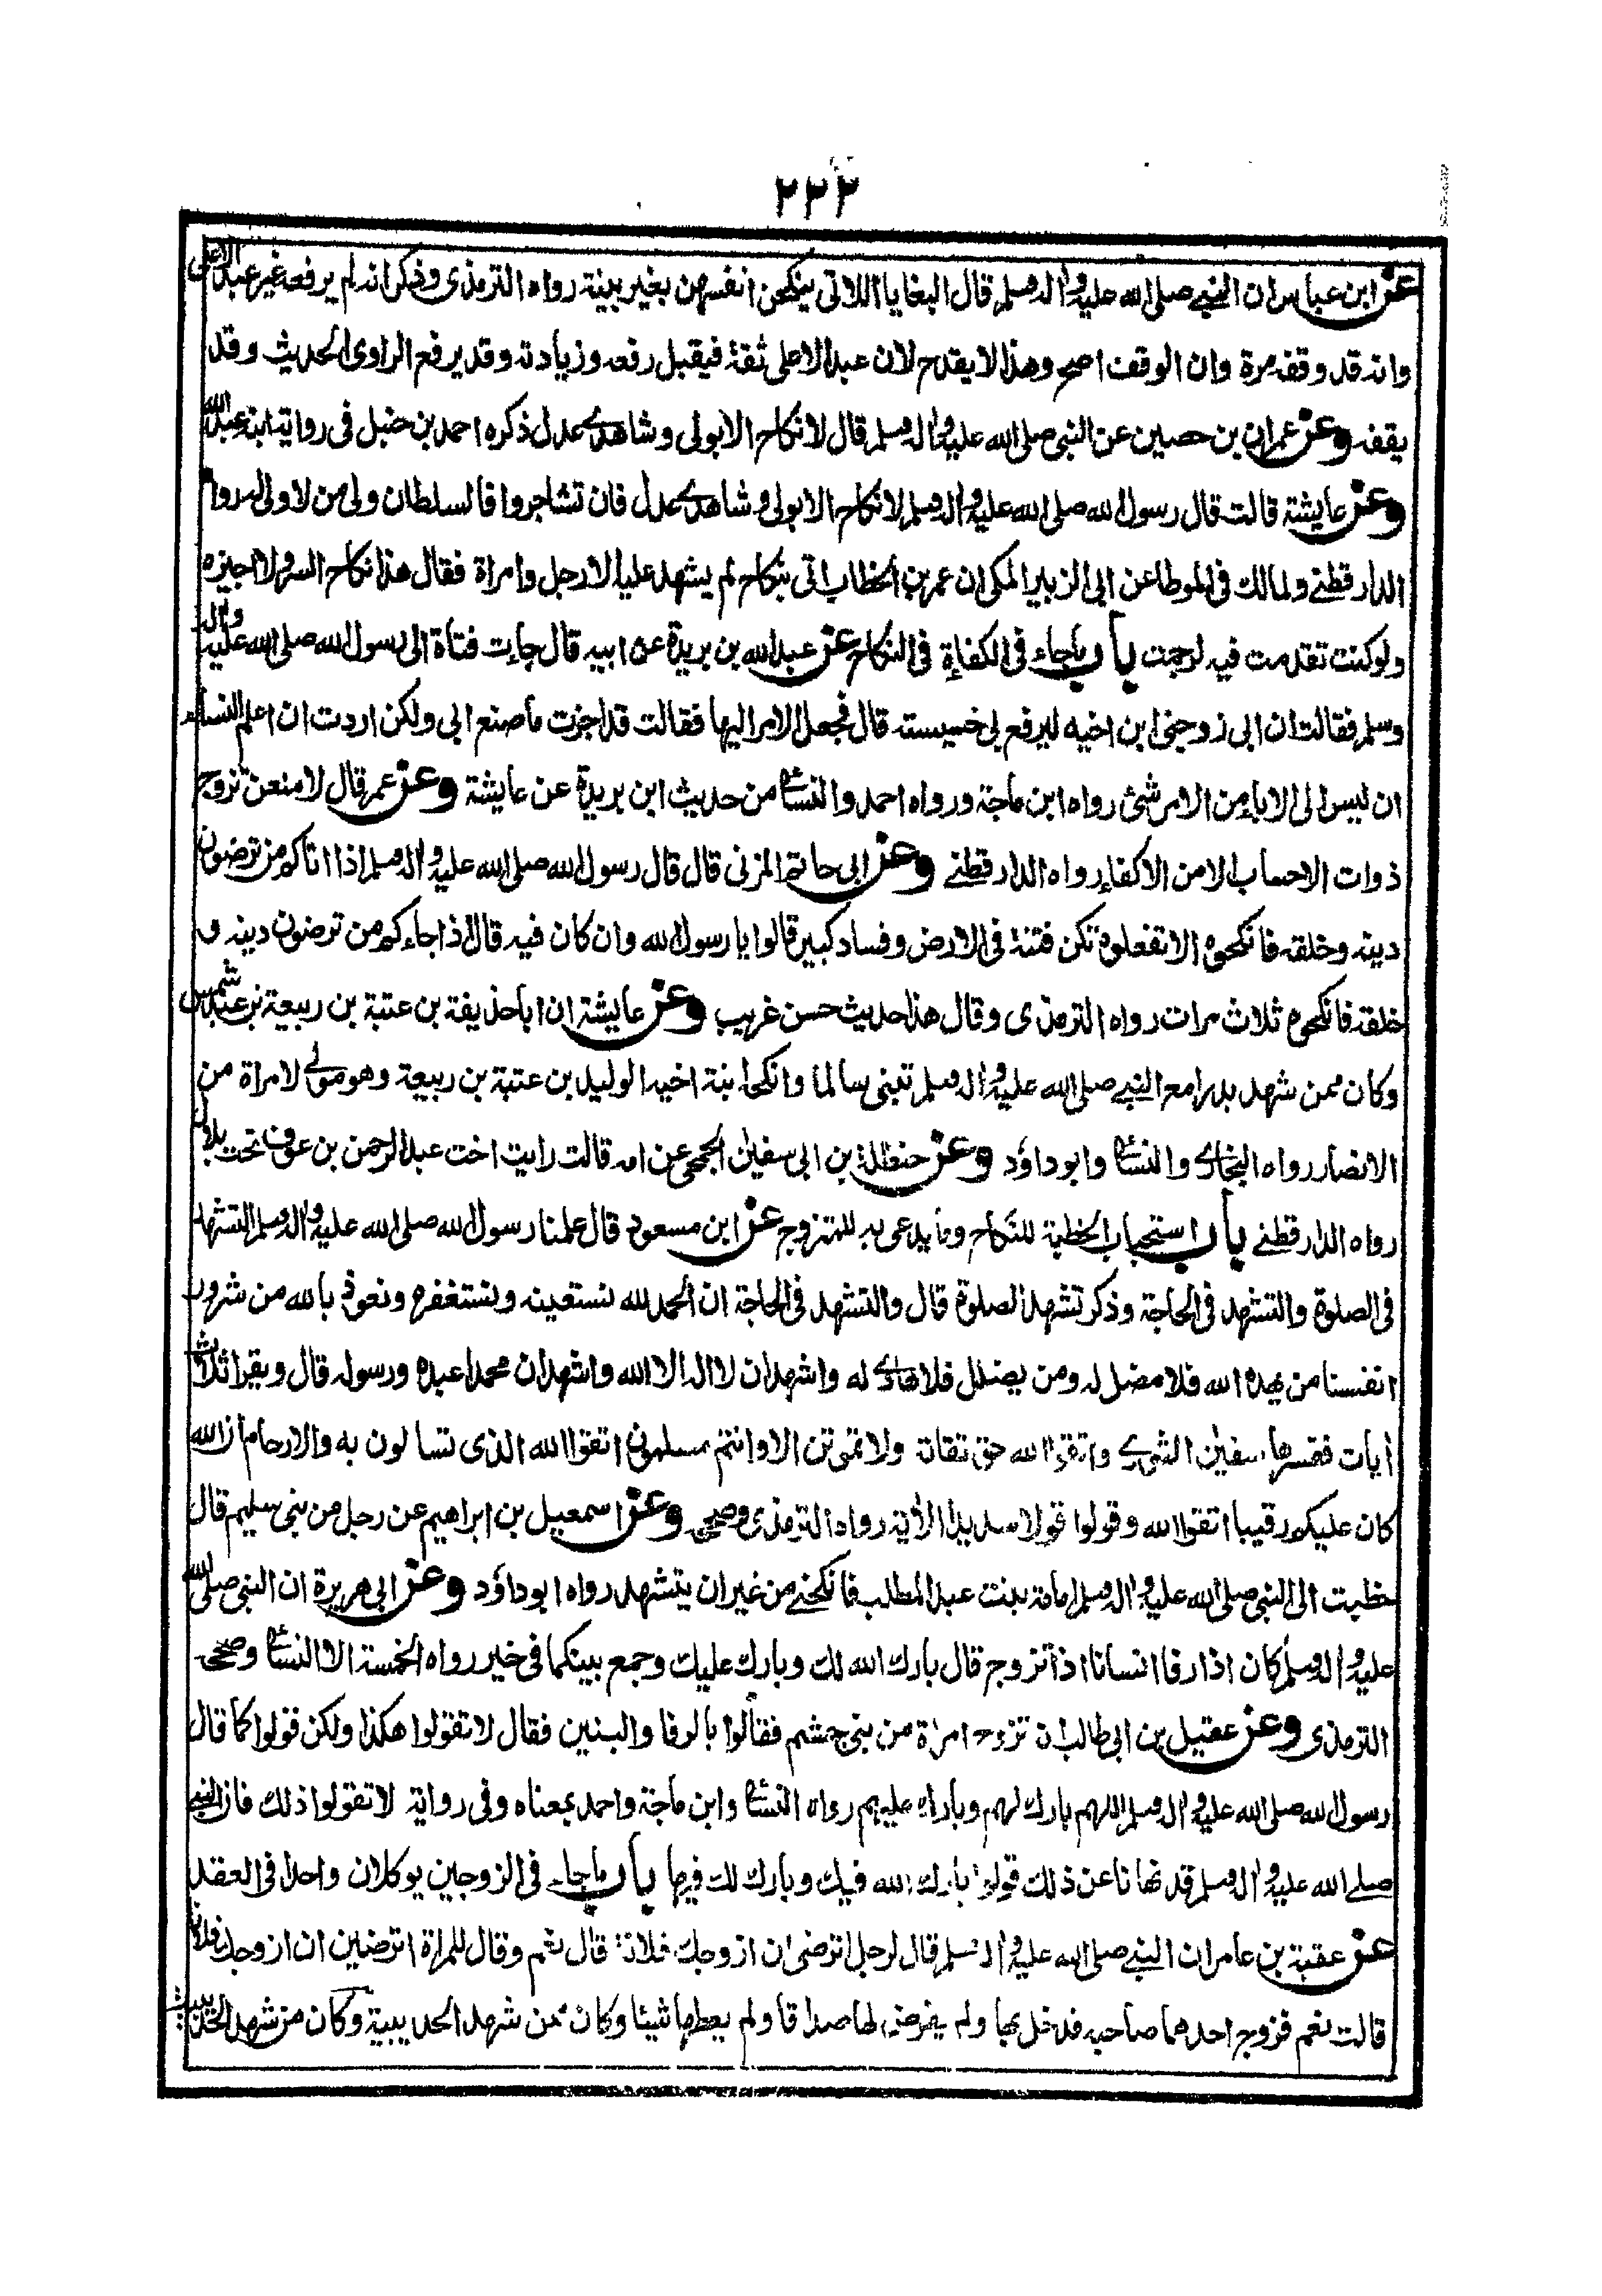 ٢٣٢
عن ابن عباس ان النبي صلى الله عليه واله وسلم قال البغايا اللاتى ينكحن انفسهن بغير بينة رواه الترمذى وذكر انه لم يرفعه غير عبد الاعلى
وانه قد وقفه مرة وان الوقف اصح وهذا لا يقدح لان عبد الاعلى ثقة فيقبل رفعه وزيادته وقد يرفع الراوى الحديث وقد
يقفه وعن عمران بن حصين عن النبى صلى الله عليه واله وسلم قال لا نكاح الا بولى وشاهدى عدل ذكره احمد بن حنبل فى رواية ابنه عبد الله
وعن عايشة قالت قال رسول الله صلى الله عليه واله وسلم لا نكاح الا بولى وشاهدى عدل فان تشاجروا فالسلطان ولى من لا ولى له رواه
الدارقطنے ولمالك فى الموطا عن ابى الزبير المكى ان عمر بن الخطاب اتى بنكاح لم يشهد عليه الا رجل وامراة فقال هذا نكاح السر ولا اجيزه
ولو كنت تقدمت فيه لرجمت باب ماجاء فى الكفاءة فى النكاح عن عبد الله بن بريدة عن ابيه قال جاءت فتاة الى رسول الله صلى الله عليه واله
وسلم فقالت ان ابى زوجنى ابن اخيه ليرفع بى خسيسته قال فجعل الامر اليها فقالت قد اجزت ما صنع ابى ولكن اردت ان اعلم النساء
ان ليس الى الاباء من الامر شئ رواه ابن ماجة ورواه احمد والنسائى من حديث ابن بريدة عن عايشة وعن عمر قال لامنعن تزوج
ذوات الاحساب الا من الاكفاء رواه الدارقطنے وعن ابى حاتم المزنى قال قال رسول الله صلى الله عليه واله وسلم اذا اتاكم من ترضون
دينه وخلقه فانكحوه الا تفعلوه تكن فتنة فى الارض وفساد كبير قالوا يا رسول الله وان كان فيه قال اذا جاءكم من ترضون دينه و
خلقه فانكحوه ثلاث مرات رواه الترمذى وقال هذا حديث حسن غريب وعن عايشة ان ابا حذيفة بن عتبة بن ربيعة بن عبد شمس
وكان ممن شهد بدرا مع النبي صلى الله عليه واله وسلم تبنى سالما وانكحه ابنة اخيه الوليد بن عتبة بن ربيعة وهو مولى لامراة من
الانصار رواه البخارى والنسائى وابو داؤد وعن حنظلة بن ابى سفين الجمحى عن امه قالت رايت اخت عبد الرحمن بن عوف تحت بلال
رواه الدارقطنے باب استحباب الخطبة للنكاح وما يدعى به للمتزوج عن ابن مسعود قال علمنا رسول الله صلى الله عليه واله وسلم التشهد
فى الصلوة والتشهد فى الحاجة وذكر تشهد الصلوة قال والتشهد فى الحاجة ان الحمد لله نستعينه ونستغفره ونعوذ بالله من شرور
انفسنا من يهده الله فلا مضل له ومن يضلل فلا هادى له واشهد ان لا اله الا الله واشهد ان محمدا عبده ورسوله قال ويقرا ثلاث
أيات ففسرها سفين الثورى واتقوا الله حق تقاته ولا تموتن الا وانتم مسلمون اتقوا الله الذى تساءلون به والارحام ان الله
كان عليكم رقيبا اتقوا الله وقولوا قولا سديدا الأية رواه الترمذى وصححه وعن اسمعيل بن ابراهيم عن رجل من بنى سليم قال
خطبت الى النبى صلى الله عليه واله وسلم امامة بنت عبد المطلب فانكحنے من غير ان يتشهد رواه ابو داؤد وعن ابى هريرة ان النبى صلى الله
عليه واله وسلم كان اذا رفا انسانا اذا تزوج قال بارك الله لك وبارك عليك وجمع بينكما فى خير رواه الخمسة الا النسائى وصححه
الترمذى وعن عقيل بن ابى طالب ان تزوج امراة من بنى جشم فقالوا بالرفا والبنين فقال لا تقولوا هكذا ولكن قولوا كما قال
رسول الله صلى الله عليه واله وسلم اللهم بارك لهم وبارك عليهم رواه النسائى وابن ماجة واحمد بمعناه وفى رواية لا تقولوا ذلك فان النبي
صلى الله عليه واله وسلم قد نهانا عن ذلك قولوا بارك الله فيك وبارك لك فيها باب ماجاء فى الزوجين يوكلان واحدا فى العقد
عن عقبة بن عامر ان النبي صلى الله عليه واله وسلم قال لرجل اترضى ان ازوجك فلانة قال نعم وقال للمراة اترضين ان ازوجك فلانا
قالت نعم فزوج احدهما صاحبه فدخل بها ولم يفرض لها صداقا ولم يعطها شيئا وكان ممن شهد الحديبية وكان من شهد الحديبية